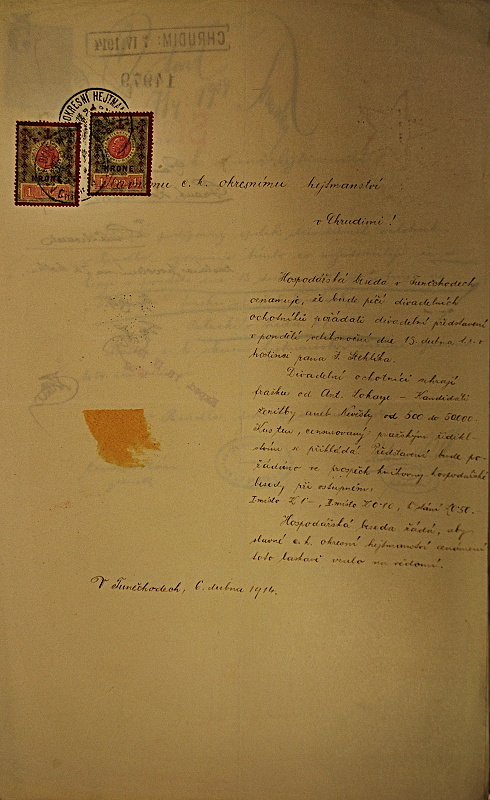 CHRUDIM: 7 IV. 1914
14979
OKRESNÍ HEJTMAN
1 KRONE 1 KRONE
Slavnému c. k. okresnímu hejtmanství
v Chrudimi!
Hospodářská beseda v Tuněchodech
oznamuje, že bude péčí divadelních
ochotníků pořádati divadelní představení
v pondělí velikonoční dne 13. dubna t. r. v
hostinci pana J.
Divadelní ochotníci sehrají
frašku od Ant. Lokaye – Kandidáti
ženitby aneb Nevěsty od 500 do 50000.
Kus ten, censurovaný pražským ředitel-
stvím se přikládá. Představení bude po-
řádáno ve prospěch knihovny hospodářské
besedy při vstupném:
I místo K 1–, II místo K 0·60, K stání K 0·30.
Hospodářská beseda žádá, aby
slavné c. k. okresní hejtmanství oznámení
toto laskavě vzalo na vědomí.
V Tuněchodech, 6. dubna 1914.